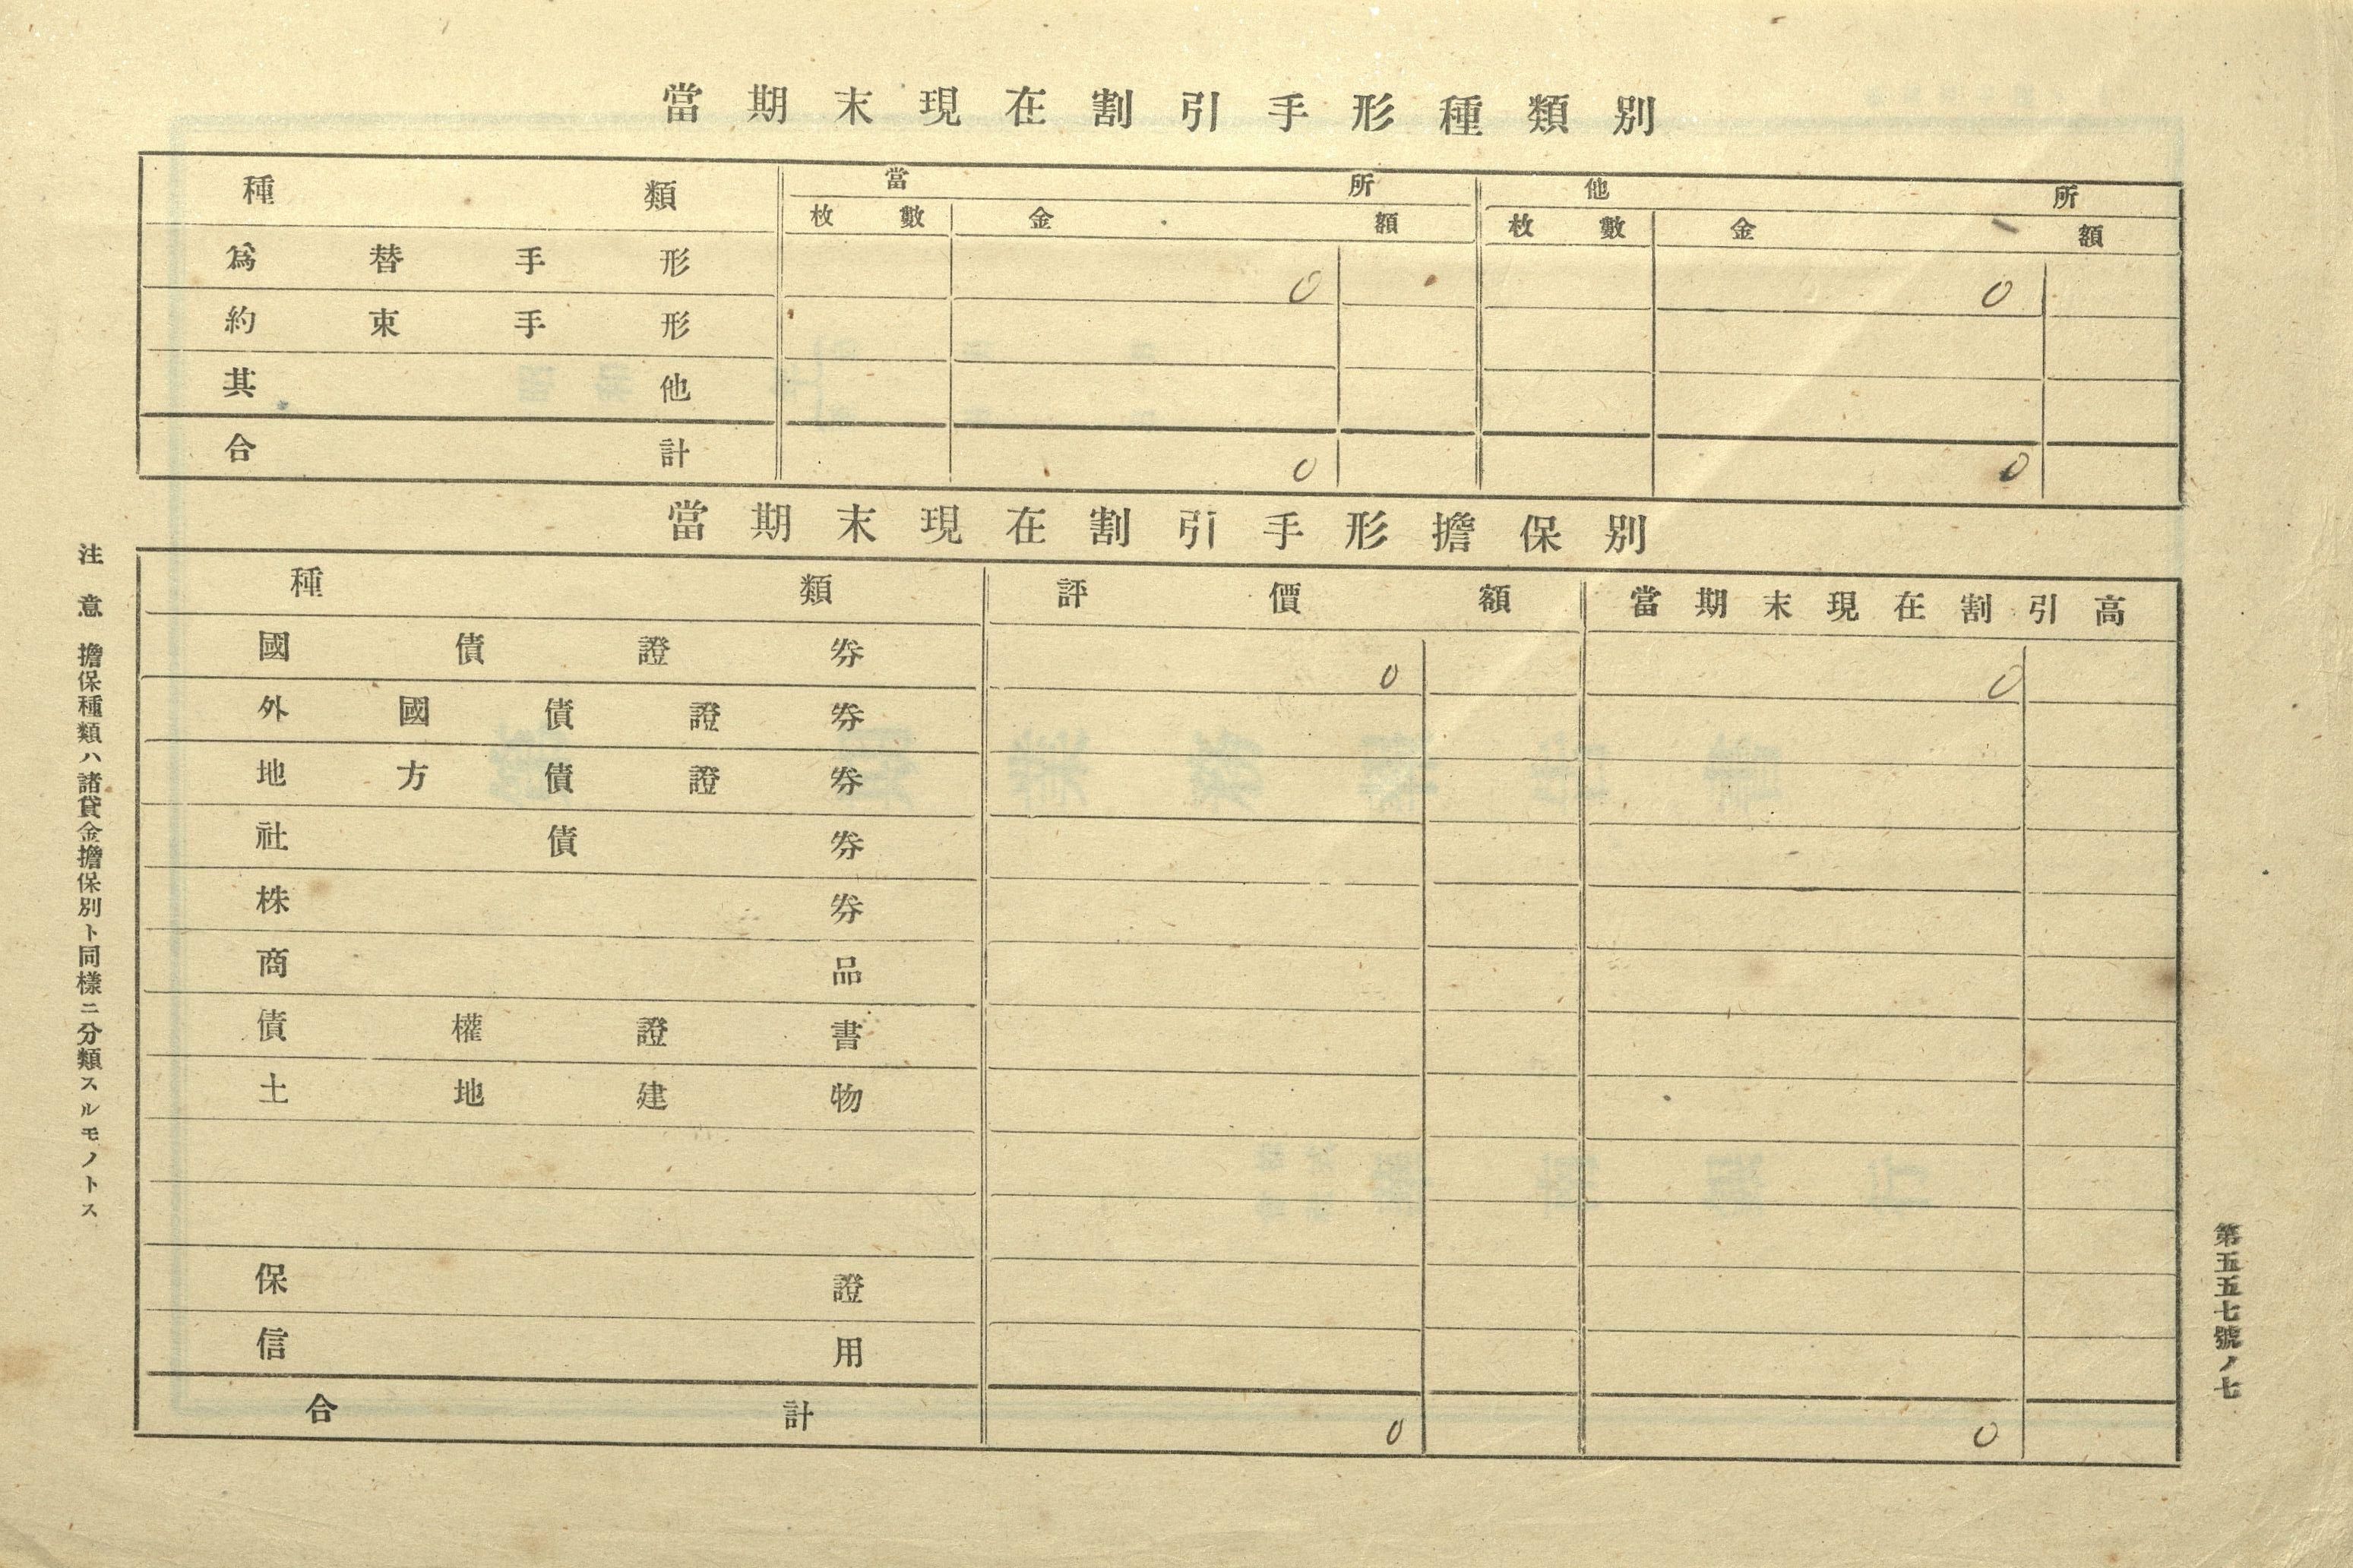 當期末現在割引手形種類別
種類 當所 他所
枚數 金額 枚數 金額
爲替手形 0 0
約束手形
其他
合計 0 0
當期末現在割引手形擔保別
種類 評價額 當期末現在割引高
國債證券 0 0
外國債證券
地方債證券
社債券
株券
商品
債權證書
土地建物
保證
信用
合計 0 0
注意 擔保種類ハ諸貸金擔保別ト同樣ニ分類スルモノトス
第五五七號ノ七